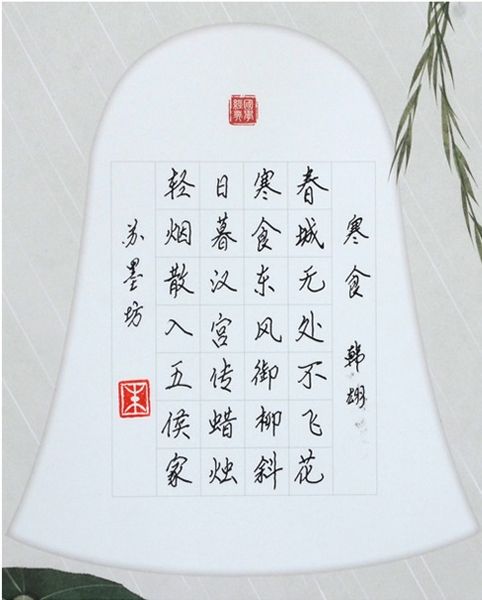 国学经典
寒食 韩翃
春城无处不飞花
寒食东风御柳斜
日暮汉宫传蜡烛
轻烟散入五侯家
苏墨坊